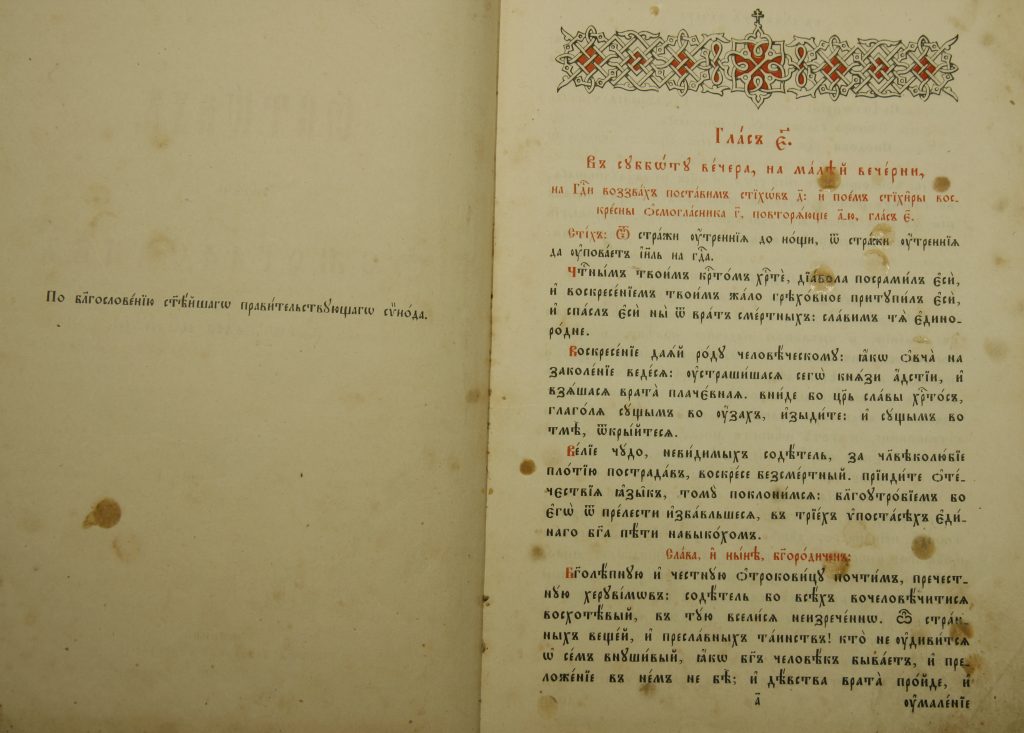 По бл҃гослове́нїю ст҃ѣ́йшагѡ прави́тельствующагѡ сѷно́да.
Гла́съ є҃.
Въ сꙋббѡ́тꙋ ве́чера, на ма́лѣй вече́рни,
на Гдⷭ҇и воззва́хъ поста́вимъ стїхѡ́въ д҃: и҆ пое́мъ стїхи̑ры вос-
кре́сны ѻ҆смогла́сника г҃, повторѧ́юще а҃-ю, гла́съ є҃.
Сті́хъ: Ѿ стра́жи ᲂу҆́треннїѧ до но́щи, ѿ стра́жи ᲂу҆́треннїѧ
да ᲂу҆пова́етъ і҆и҃ль на гдⷭ҇а.
Чтⷭ҇ны́мъ твои́мъ крⷭ҇то́мъ хрⷭ҇тѐ, дїа́вола посрами́лъ є҆сѝ,
и҆ воскресе́нїемъ твои́мъ жа́ло грѣхо́вное притꙋпи́лъ є҆сѝ,
и҆ спа́слъ є҆сѝ ны̀ ѿ вра́тъ сме́ртныхъ: сла́вимъ тѧ̀ є҆диноро́-
ро́дне.
Воскресе́нїе даѧ́й ро́дꙋ человѣ́ческомꙋ: ꙗ҆́кѡ ѻ҆вча̀ на
заколе́нїе веде́сѧ: ᲂу҆страши́шасѧ сегѡ̀ кнѧ̑зи а҆́дстїи, и҆
взѧ́шасѧ врата̀ плаче́внаѧ. вни́де бо цр҃ь сла́вы хрⷭ҇то́съ,
глаго́лѧ сꙋ́щымъ во ᲂу҆́захъ, и҆зыди́те: и҆ сꙋ́щымъ во
тмѣ̀, ѿкры́йтесѧ.
Ве́лїе чꙋ́до, неви́димыхъ содѣ́тель, за чл҃вѣколю́бїе
пло́тїю пострада́въ, воскре́се безсме́ртный. прїиди́те ѻ҆те́-
чествїѧ ꙗ҆зы̑къ, томꙋ̀ поклони́мсѧ: бл҃гоꙋтро́бїемъ бо
є҆гѡ̀ ѿ пре́лести и҆зба́вльшесѧ, въ трїе́хъ ѵ҆поста́сѣхъ є҆ди́-
наго бг҃а пѣ́ти навыко́хомъ.
Сла́ва, и҆ ны́нѣ, бг҃оро́диченъ:
Бг҃олѣ́пнꙋю и҆ че́стнꙋю ѻ҆трокови́цꙋ почти́мъ, пречест-
нꙋ́ю херꙋві́мѡвъ: содѣ́тель бо всѣ́хъ вочеловѣ́читисѧ
восхотѣ́вый, въ тꙋ́ю всели́сѧ неизрече́ннѡ. Ѽ стра́н-
ныхъ веще́й, и҆ пресла́вныхъ та́инствъ! кто̀ не ᲂу҆диви́тсѧ
ѡ҆ се́мъ внꙋши́вый, ꙗ҆́кѡ бг҃ъ человѣ́къ быва́етъ, и҆ пре-
ложе́нїе въ не́мъ не бѣ̀; и҆ дѣ́вства врата̀ про́йде, и҆
а҃
ᲂу҆мале́нїе